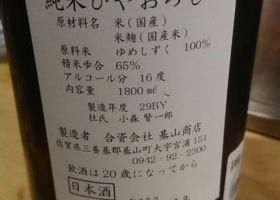 純米ひやおろし
原材料名 米(国産)
米麹(国産米)
原料米 ゆめしずく 100%
精米歩合 65%
アルコール分 16度
内容量 1800ml
製造年度 29BY
杜氏 小森 賢一郎
製造者 合資会社 基山商店
佐賀県三養基郡基山町大字宮浦151
0942-92-2300
飲酒は20歳になってから
日本酒